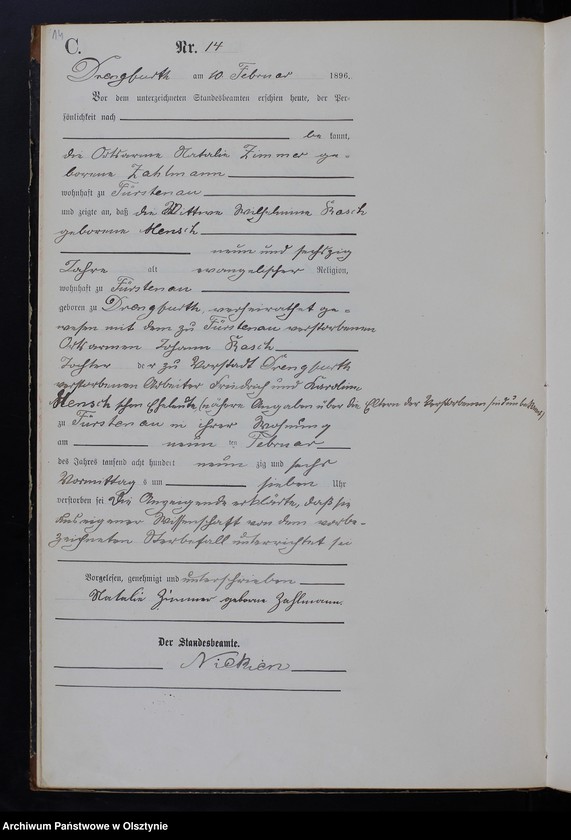 14
C.
Nr. 14
Drengfurth am 10 Februar 1896.
Vor dem unterzeichneten Standesbeamten erschien heute, der Per-
sönlichkeit nach
be kannt,
die Ortsarme Natalie Zimmer ge-
borene Zahlmann
wohnhaft zu Fürstenau
und zeigte an, daß die Wittwe Wilhelmine Kasch
geborene Mensch
neun und sechszig
Jahre alt evangelischer Religion,
wohnhaft zu Fürstenau
geboren zu Drengfurth, verheirathet ge-
wesen mit dem zu Fürstenau verstorbenen
Ortsarmen Johann Kasch
Tochter der zu Vorstadt Drengfurth
verstorbenen Arbeiter Friedrich und Karoline
Mensch schen Eheleute, (nähere Angaben über die Eltern der Verstorbenen sind unbekannt)
zu Fürstenau in ihrer Wohnung
am neun ten Februar
des Jahres tausend acht hundert neun zig und sechs
Vormittag s um sieben Uhr
verstorben sei Die Anzeigende erklärte, daß sie
aus eigener Wissenschaft von dem vorbe-
zeichneten Sterbefall unterrichtet sei
Vorgelesen, genehmigt und unterschrieben
Natalie Zimmer geborne Zahlmann.
Der Standesbeamte.
Archiwum Państwowe w Olsztynie